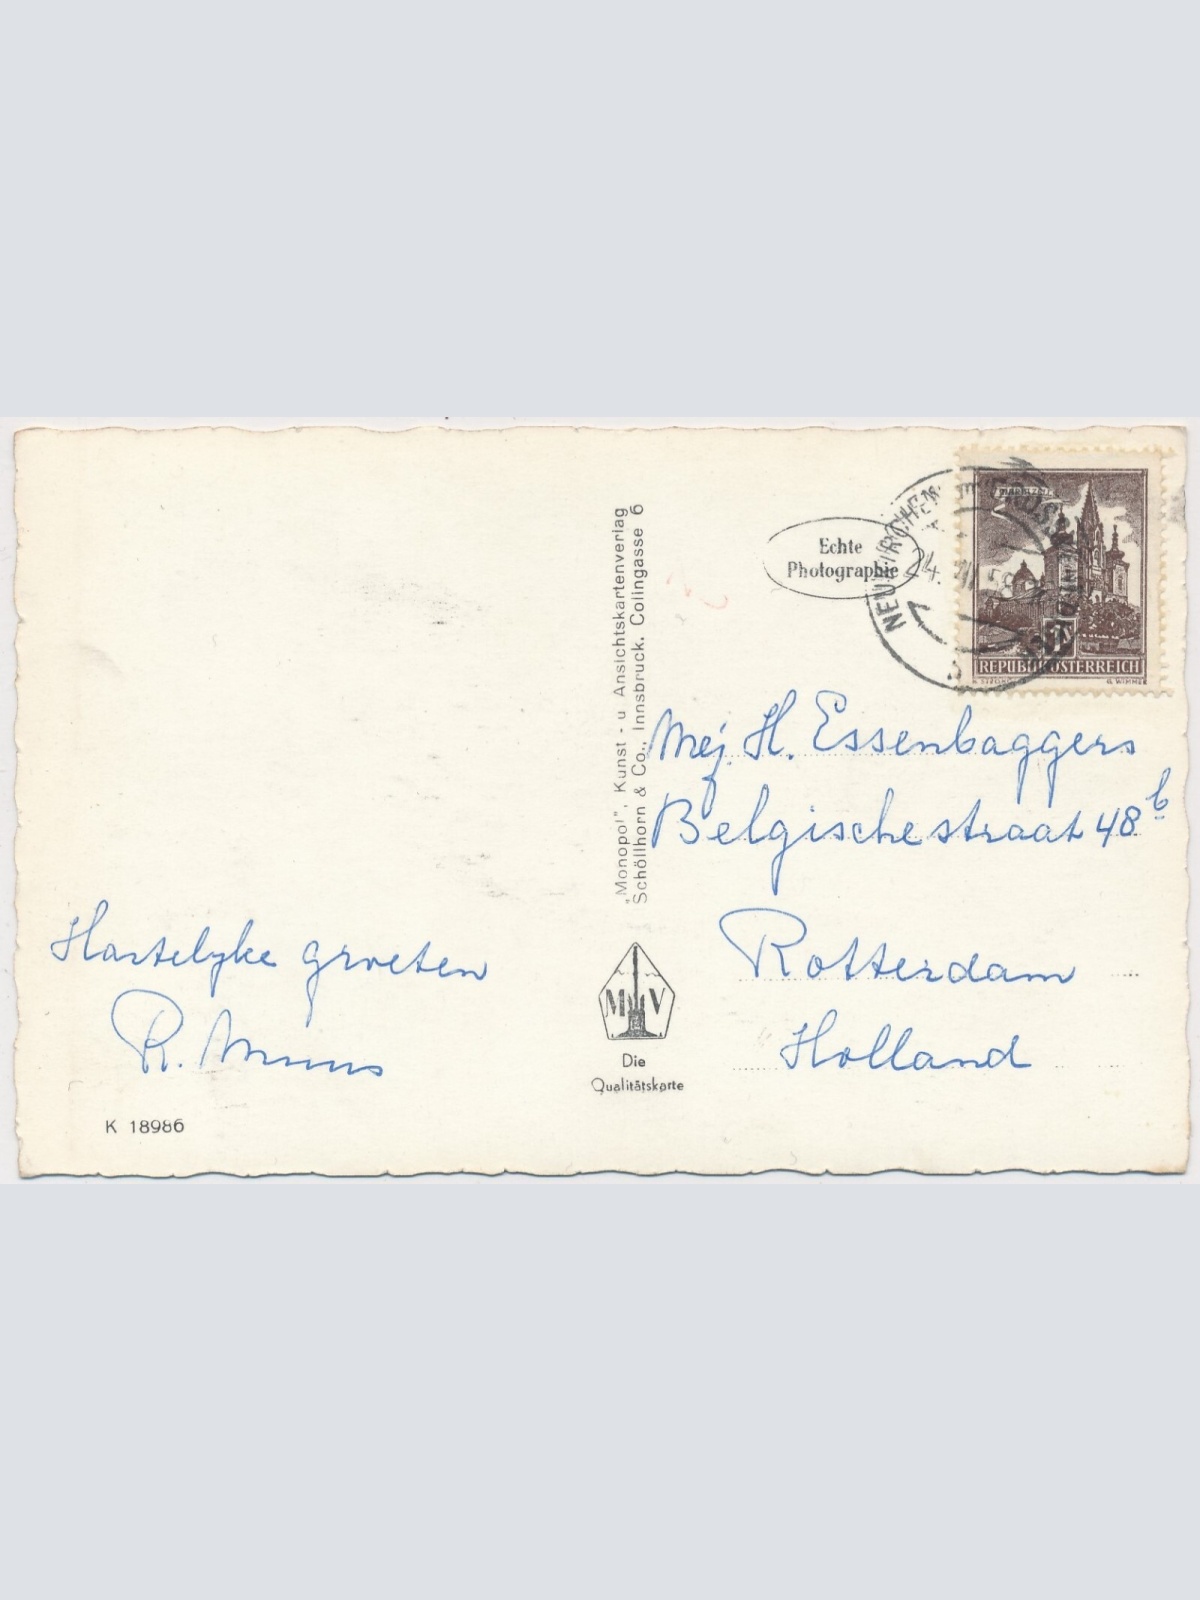 Hartelyke groeten
K 18986
"Monopol", Kunst - u Ansichtskartenverlag
Schöllhorn & Co., Innsbruck, Colingasse 6
M V
Die
Qualitätskarte
Echte
Photographie
NEUKIRCHEN
24. 58
MARIAZELL
REPUBLIK ÖSTERREICH
G. WIMMER
Mej. H. Essenbaggers
Belgischestraat 48 b
Rotterdam
Holland